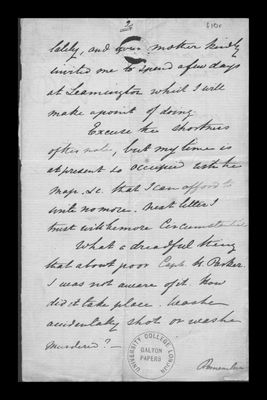 2
lately, and your mother kindly
invited me to spend a few days
at Leamington which I will
make a point of doing
Excuse the shortness
of this note, but my time is
at present so occupied with the
map. &c. that I can afford to
write no more. Next letter I
trust will be more Circumstantial.
What a dreadful thing
that about poor Capt. Parker.
I was not aware of it. How
did it take place. Was he
accidentally shot or was he
murdered? —
UNIVERSITY COLLEGE LONDON
GALTON
PAPERS
Remember